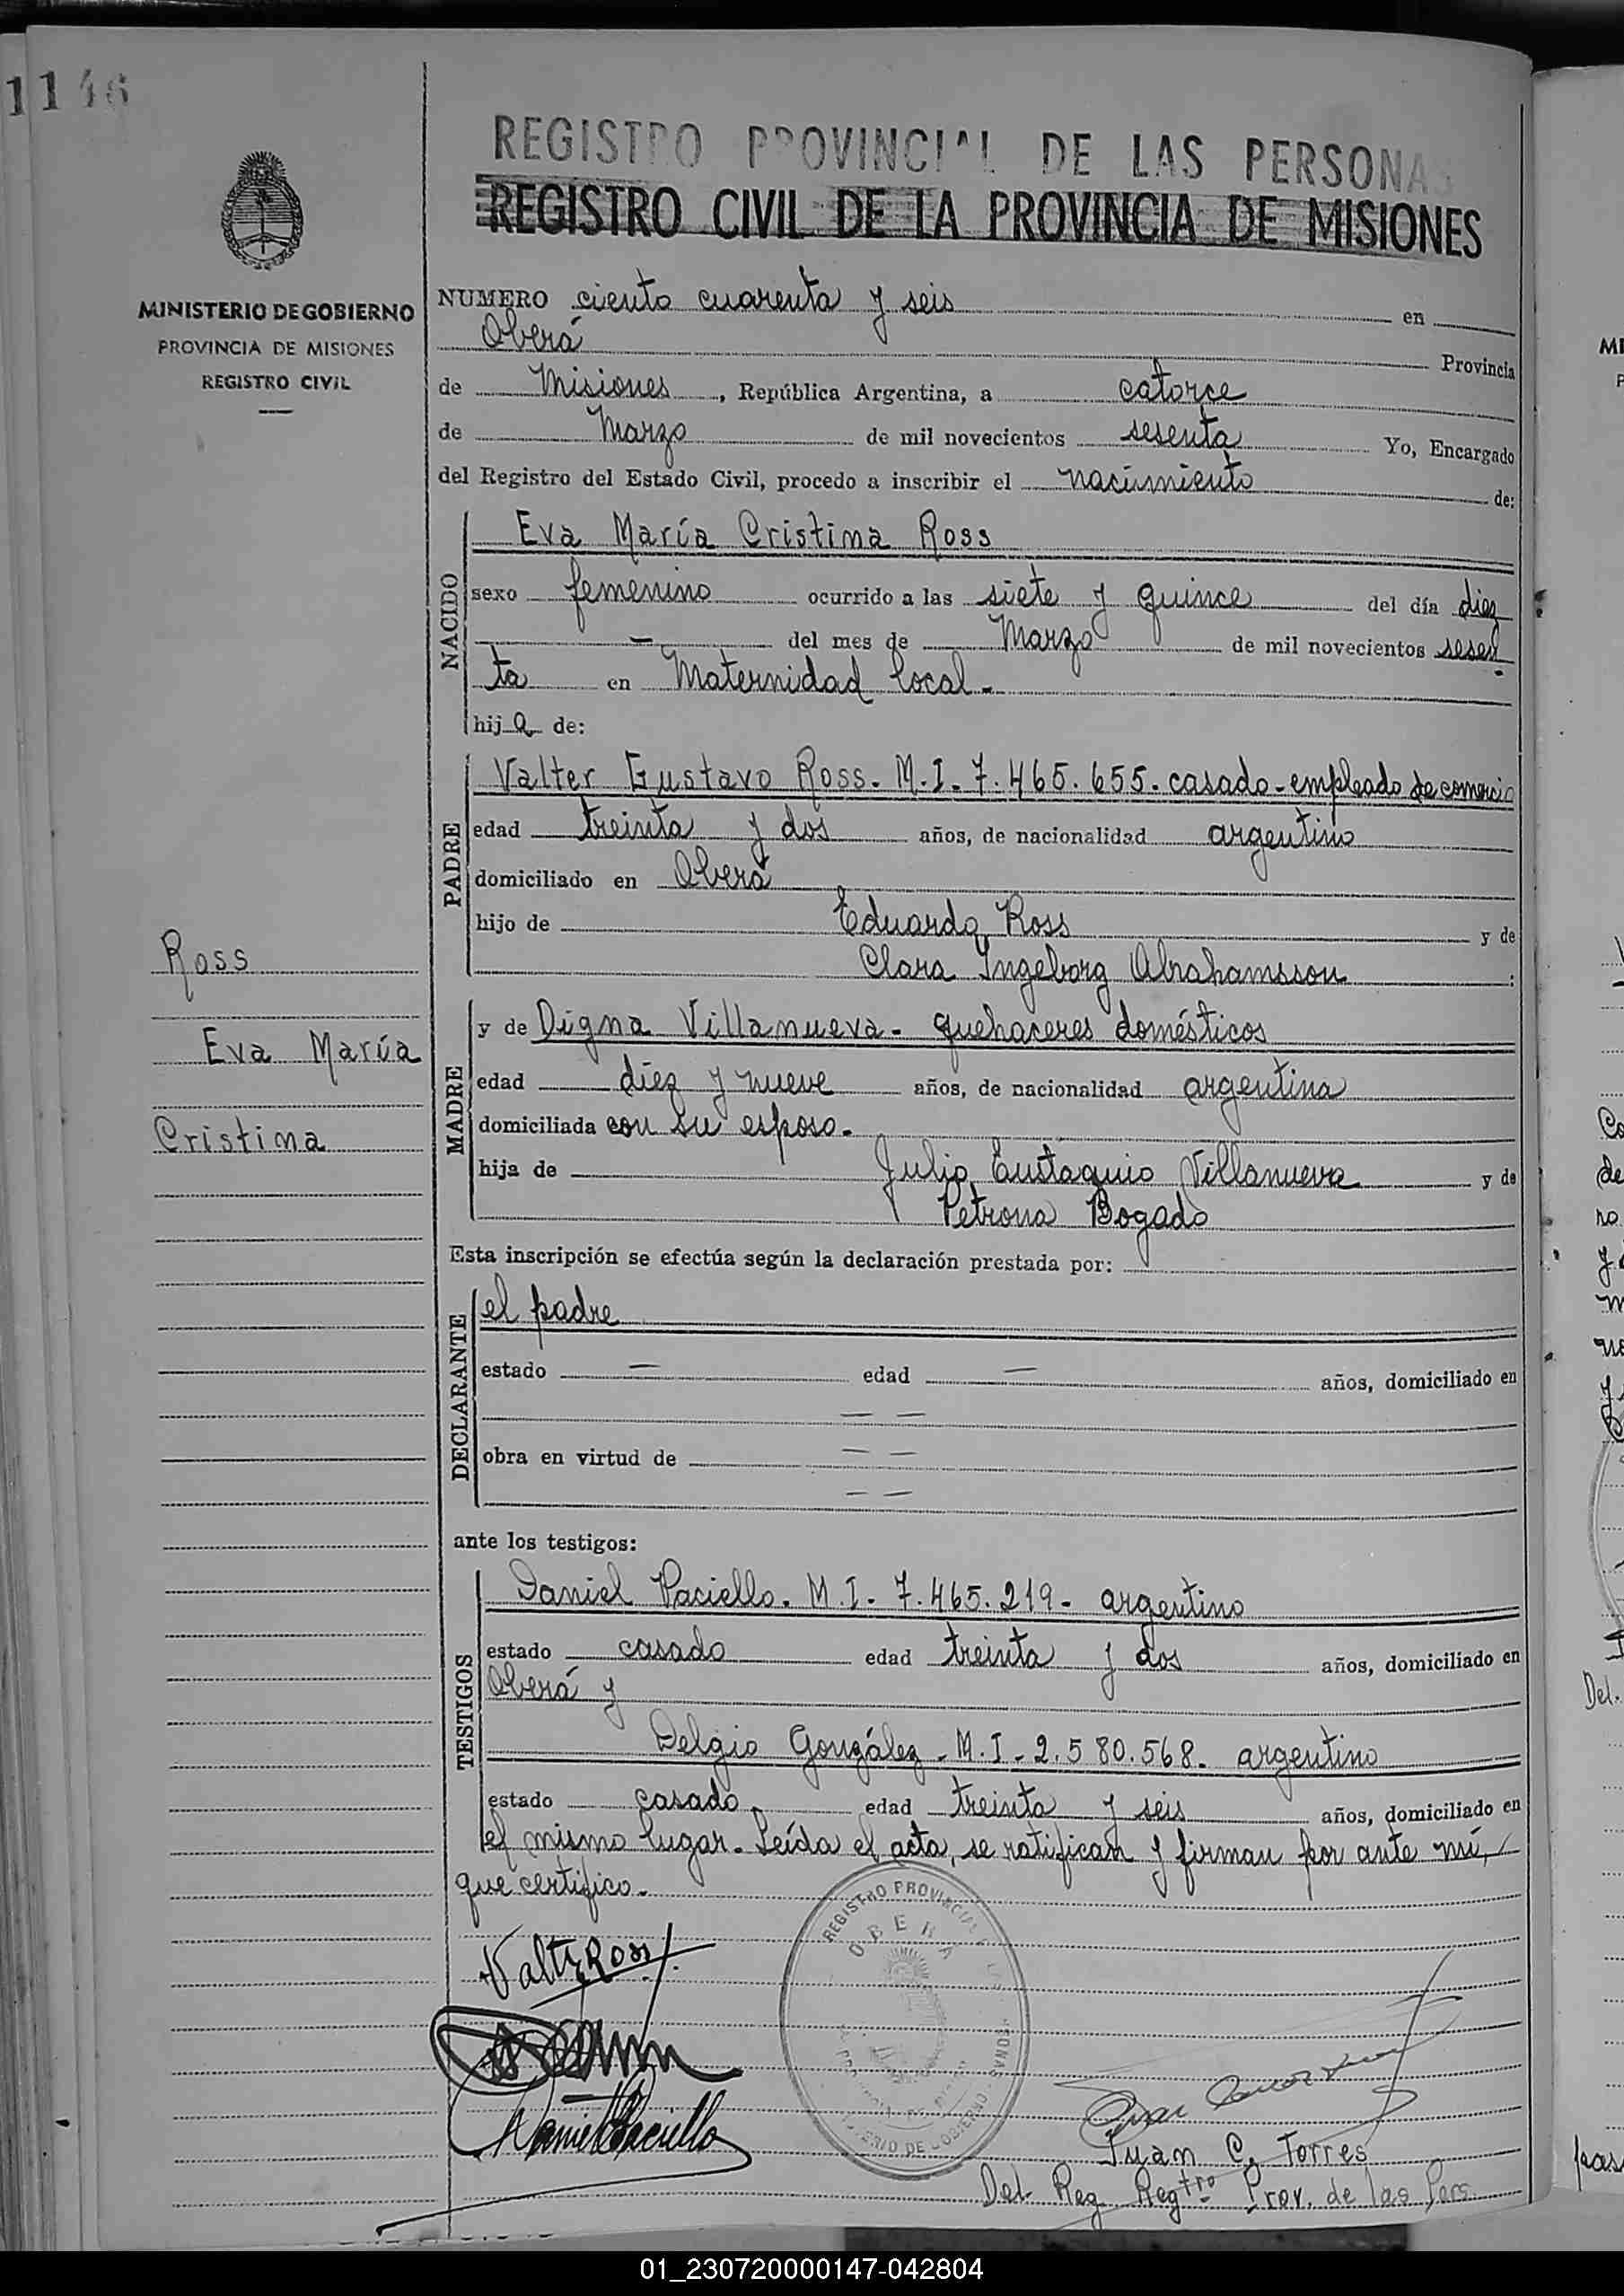 1146
REGISTRO PROVINCIAL DE LAS PERSONAS
REGISTRO CIVIL DE LA PROVINCIA DE MISIONES
MINISTERIO DE GOBIERNO
PROVINCIA DE MISIONES
REGISTRO CIVIL
NUMERO ciento cuarenta y seis en
Oberá Provincia
de Misiones, República Argentina, a catorce
de Marzo de mil novecientos sesenta Yo, Encargado
del Registro del Estado Civil, procedo a inscribir el nacimiento de:
NACIDO
Eva María Cristina Ross
sexo femenino ocurrido a las siete y quince del día diez
— del mes de Marzo de mil novecientos sesen
ta en Maternidad local.-
hija de:
PADRE
Valter Gustavo Ross. M.I. 7.465.655. casado - empleado de comercio
edad treinta y dos años, de nacionalidad argentino
domiciliado en Oberá
hijo de Eduardo Ross y de
Clara Ingeborg Abrahamsson :
Ross
Eva María
Cristina
MADRE
y de Digna Villanueva - quehaceres domésticos
edad diez y nueve años, de nacionalidad argentina
domiciliada con su esposo.
hija de Julio Eustaquio Villanueva y de
Petrona Bogado
Esta inscripción se efectúa según la declaración prestada por:
DECLARANTE
el padre
estado — edad — años, domiciliado en
— —
obra en virtud de — —
— —
ante los testigos:
TESTIGOS
Daniel Paciello. M.I. 7.465.219 - argentino
estado casado edad treinta y dos años, domiciliado en
Oberá y
Delgio González - M.I. 2.580.568. argentino
estado casado, edad treinta y seis años, domiciliado en
el mismo lugar. Leída el acta, se ratifican y firman por ante mí,
que certifico.
Valter Ross
Daniel Paciello
REGISTRO PROVINCIAL
OBERA
MINISTERIO DE GOBIERNO
Juan C. Torres
Del. Reg. Regtro Prov. de las Pers.
01_230720000147-042804